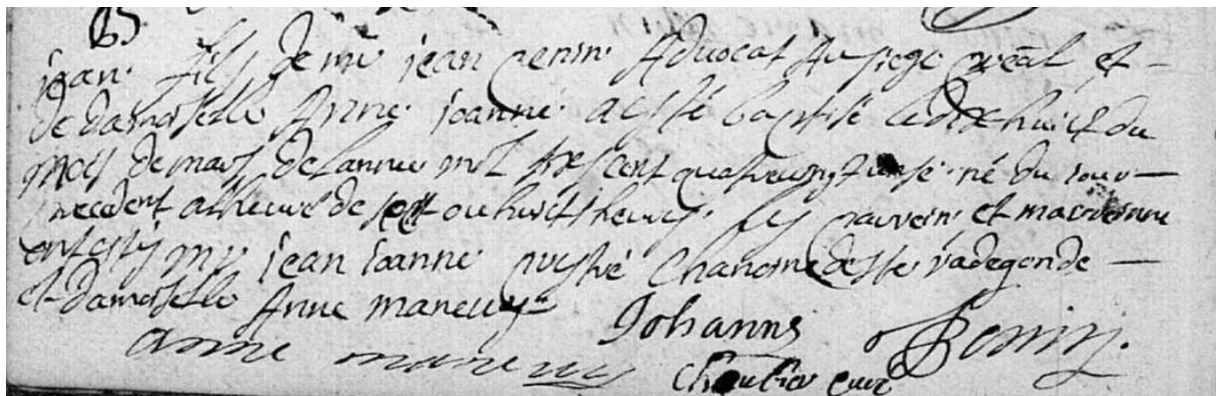 jean fils de mr jean penin Advocat Au siege pnal et
de damoiselle Anne joanne a esté baptisé le dixhuict du
mois de mars de lannee mil sixcent quatrevingt né du jour
precedent a lheure de sept ou huict heures les parrein et marreinne
ont estes mr jean joanne prestre Chanoine de ste radegonde
et damoiselle Anne maneuy
Johanne Penin
anne maneuy cure